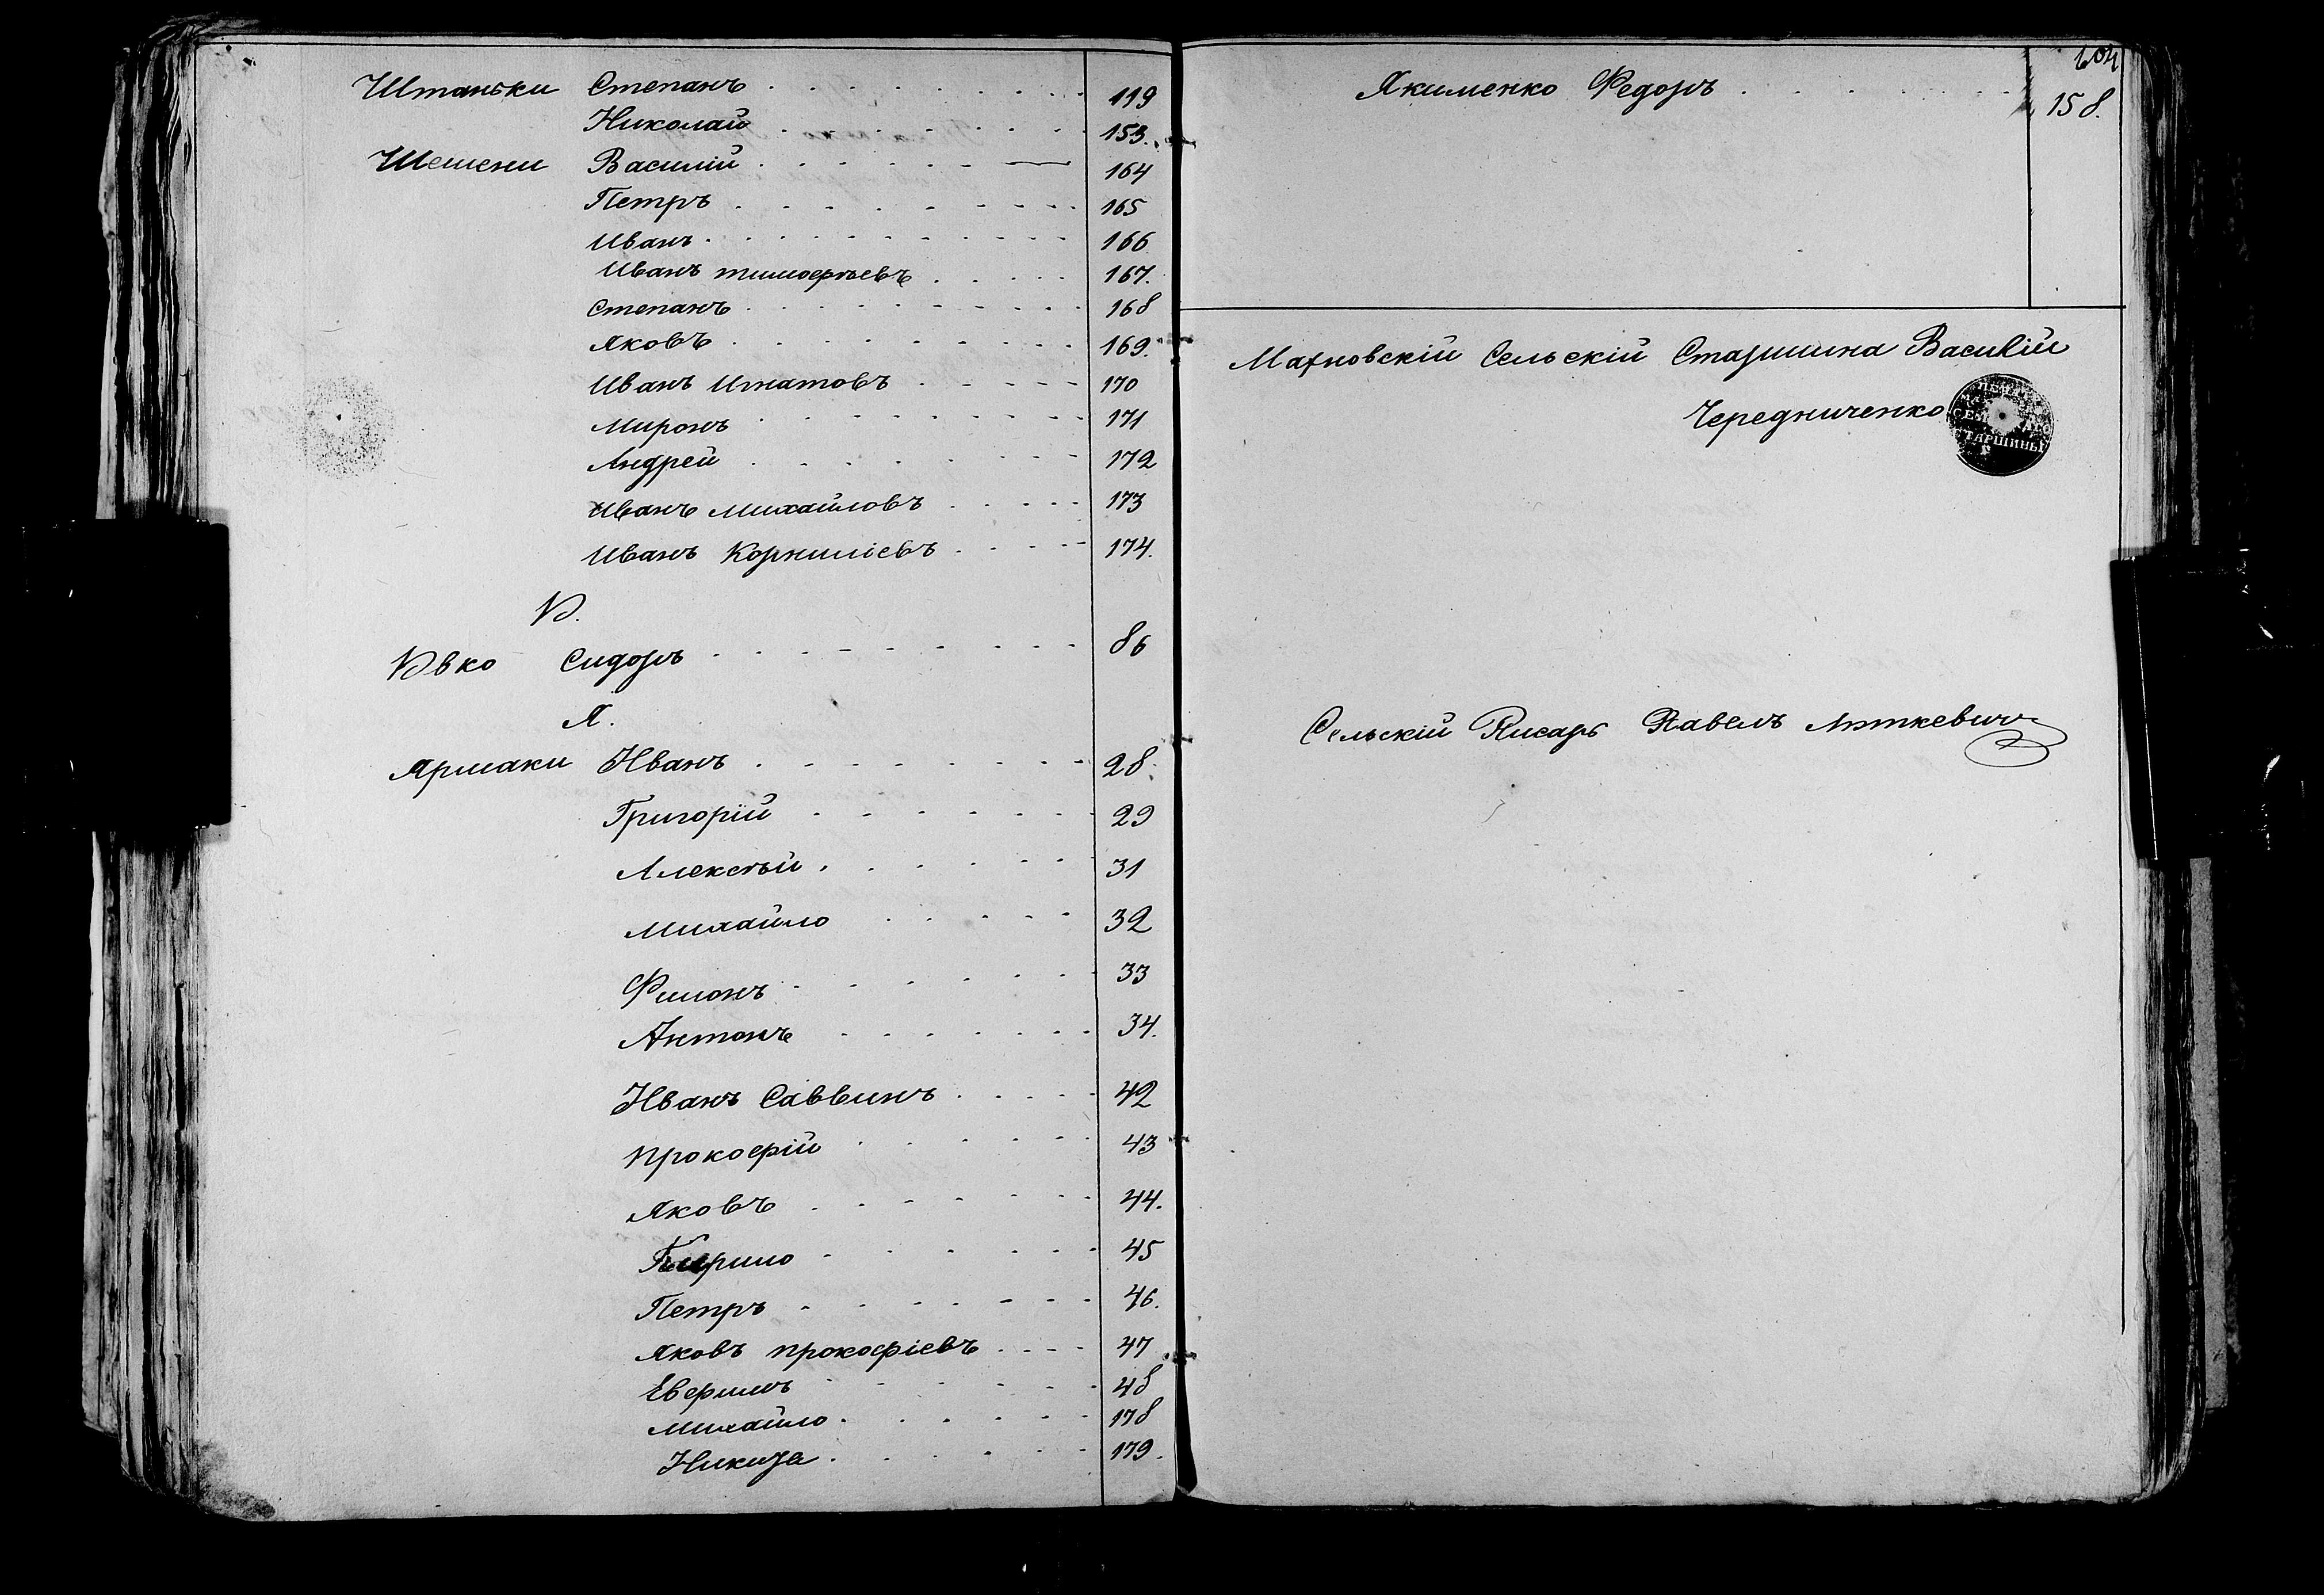 Штаньки Степанъ . . . . . . . . . 119
Николай . . . . . . . . . 153.
Шешени Василій . . . . . . — 164
Петръ . . . . . . . . . 165
Иванъ . . . . . . . . . . . 166
Иванъ тимофѣевъ . . . . . 167.
Степанъ . . . . . . . . . . 168
Яковъ . . . . . . . . . 169.
Иванъ Игнатовъ . . . . . 170
Миронъ . . . . . . . . . 171
Андрей . . . . . . . . 172
Иванъ Михайловъ . . . . . 173
Иванъ Корниліевъ . . . . 174.
Ю.
Ювко Сидоръ . . . . . . . . . 86
Я.
Ярмаки Иванъ . . . . . . . . 28.
Григорій . . . . . . 29
Алексѣй . . . . . . 31
Михайло . . . . . 32
Филонъ . . . . . . . 33
Антонъ . . . . . . . 34.
Иванъ Саввинъ . . . . . 42
Прокофій . . . . . . 43
Яковъ . . . . . . . 44.
Кирило . . . . . . . 45
Петръ . . . . . . . . 46.
Яковъ прокофіевъ . . . . 47
Евфимъ . . . . . . 48
Михайло . . . . . . 178
Никита . . . . . . 179.
604
Якименко Федоръ . . . . . . . 158.
Махновскій Сельскій Старшина Василій
Чередниченко
СТАРШИНЫ
Сельскій Писарь Павелъ Люткевичъ